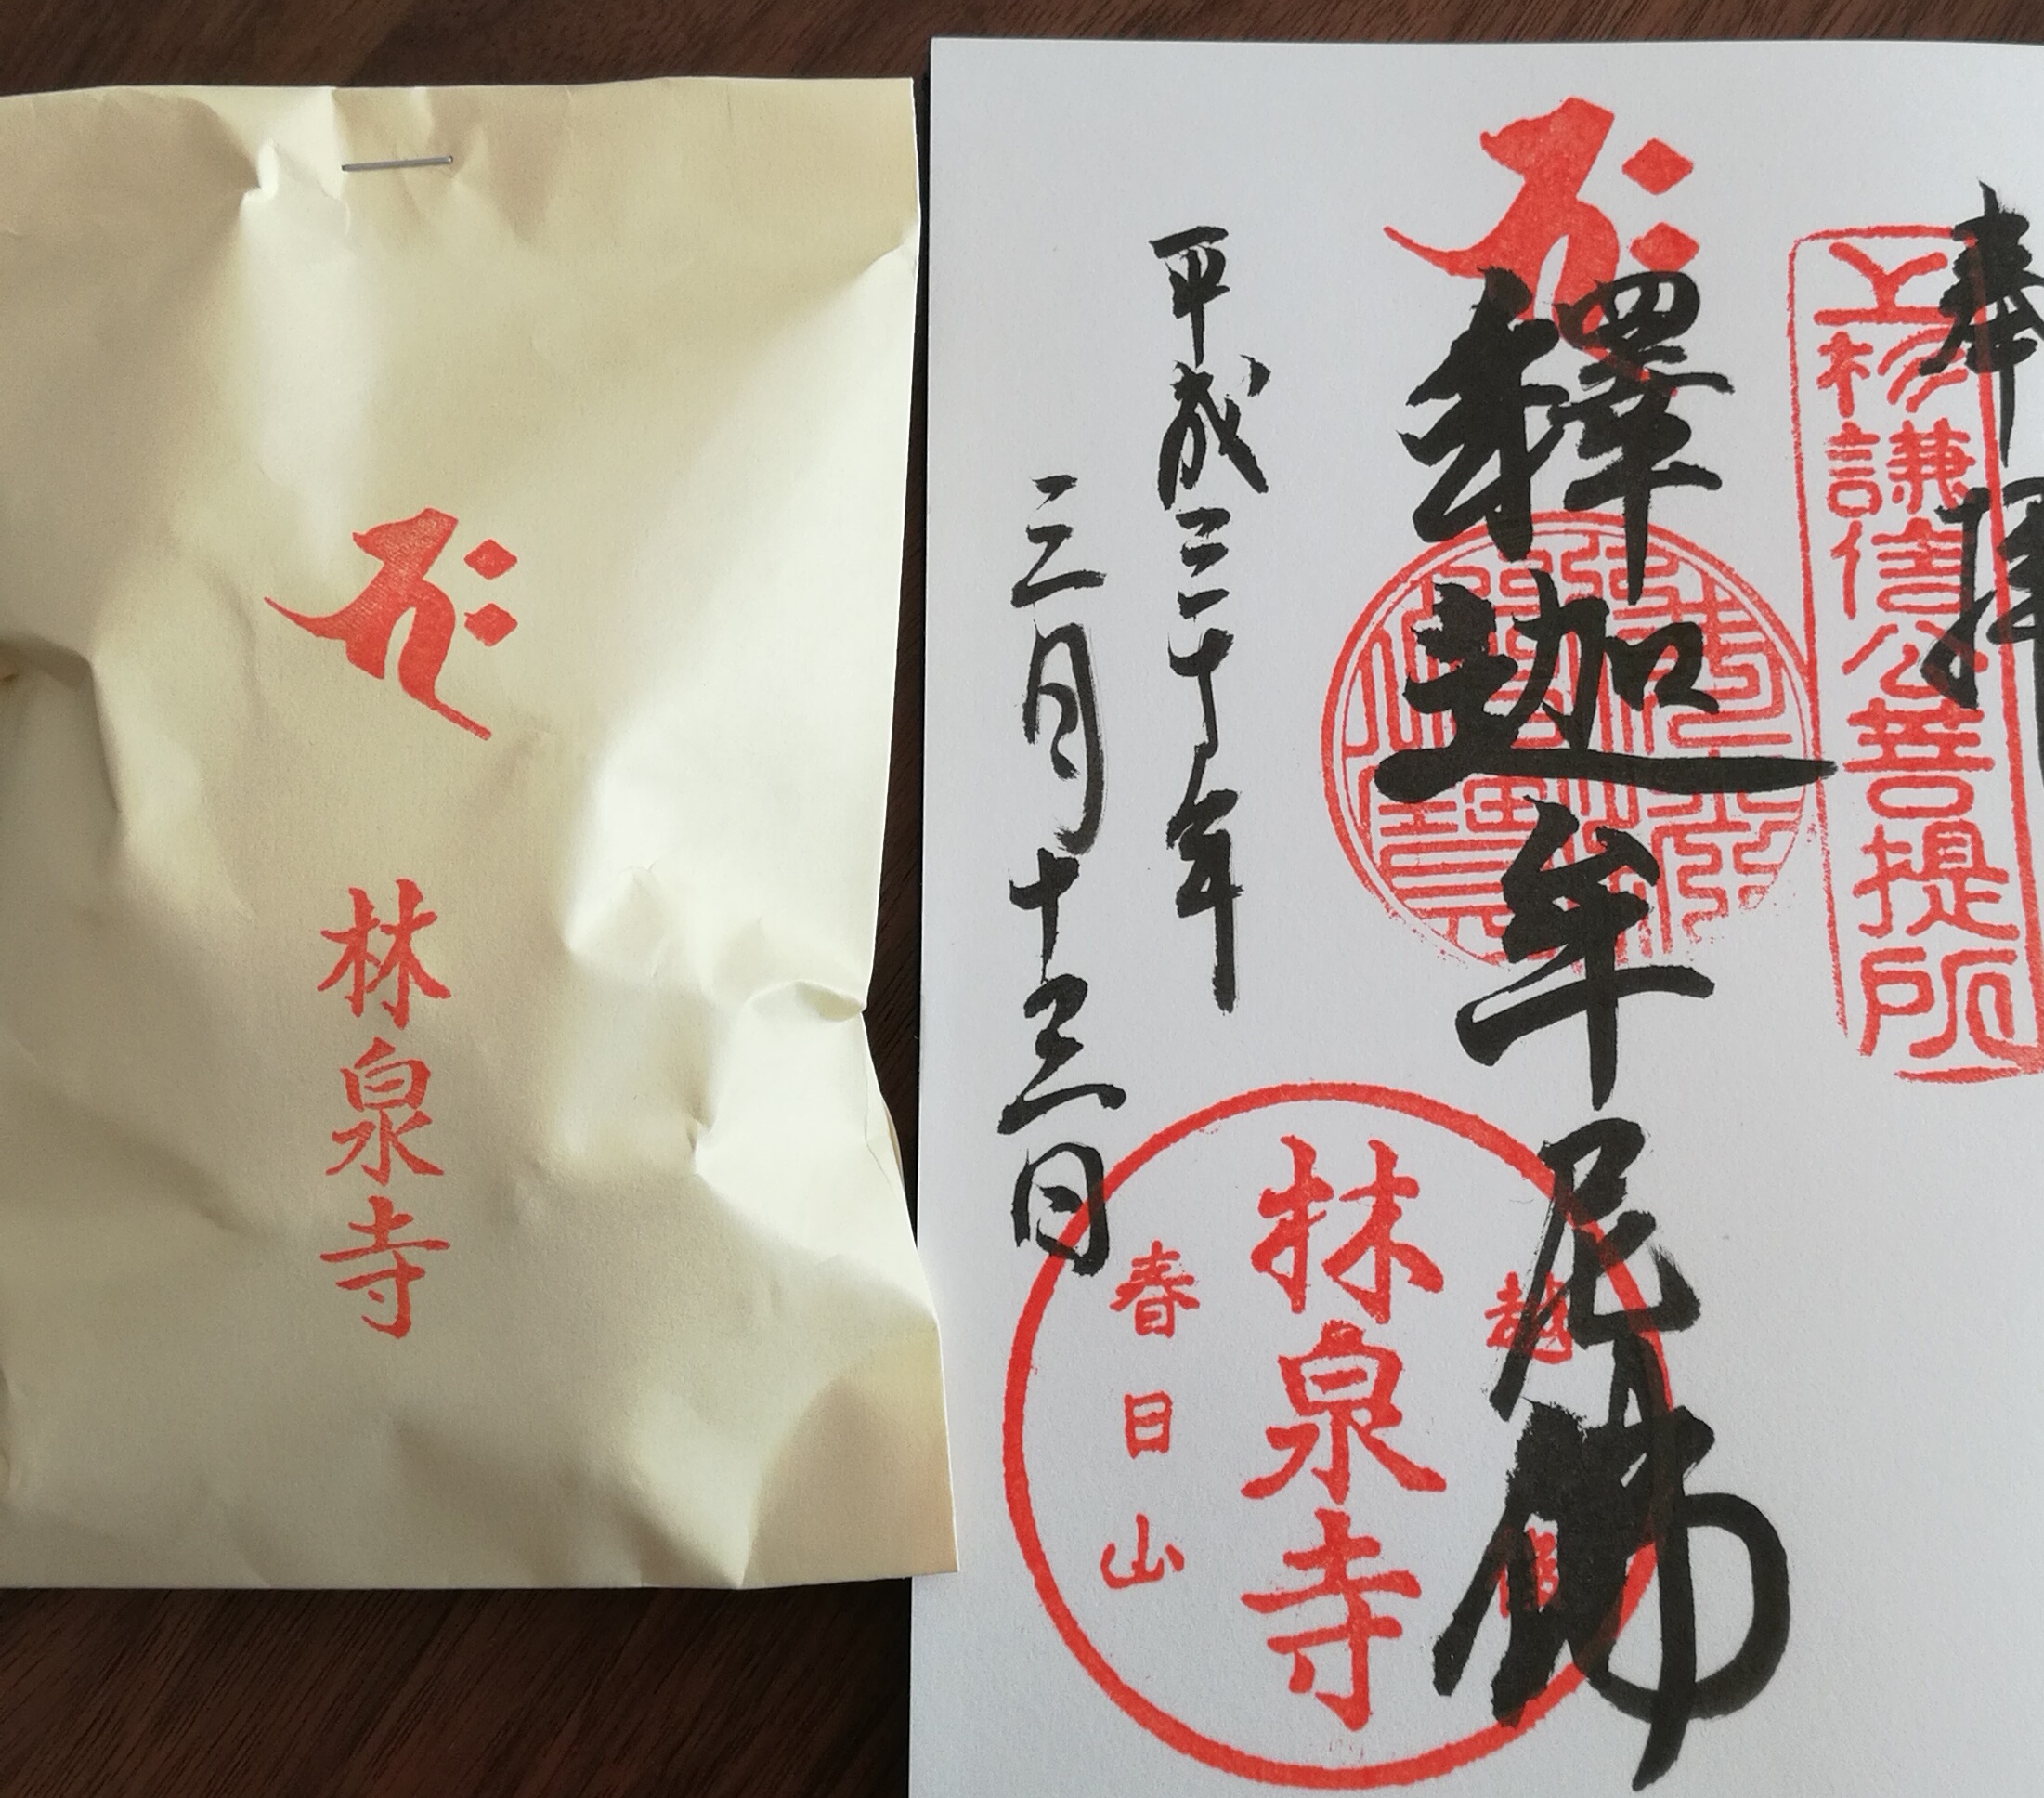 林泉寺
奉拝
上杉謙信公菩提所
釋迦牟尼佛
平成三十年
三月十三日
越後
林泉寺
春日山